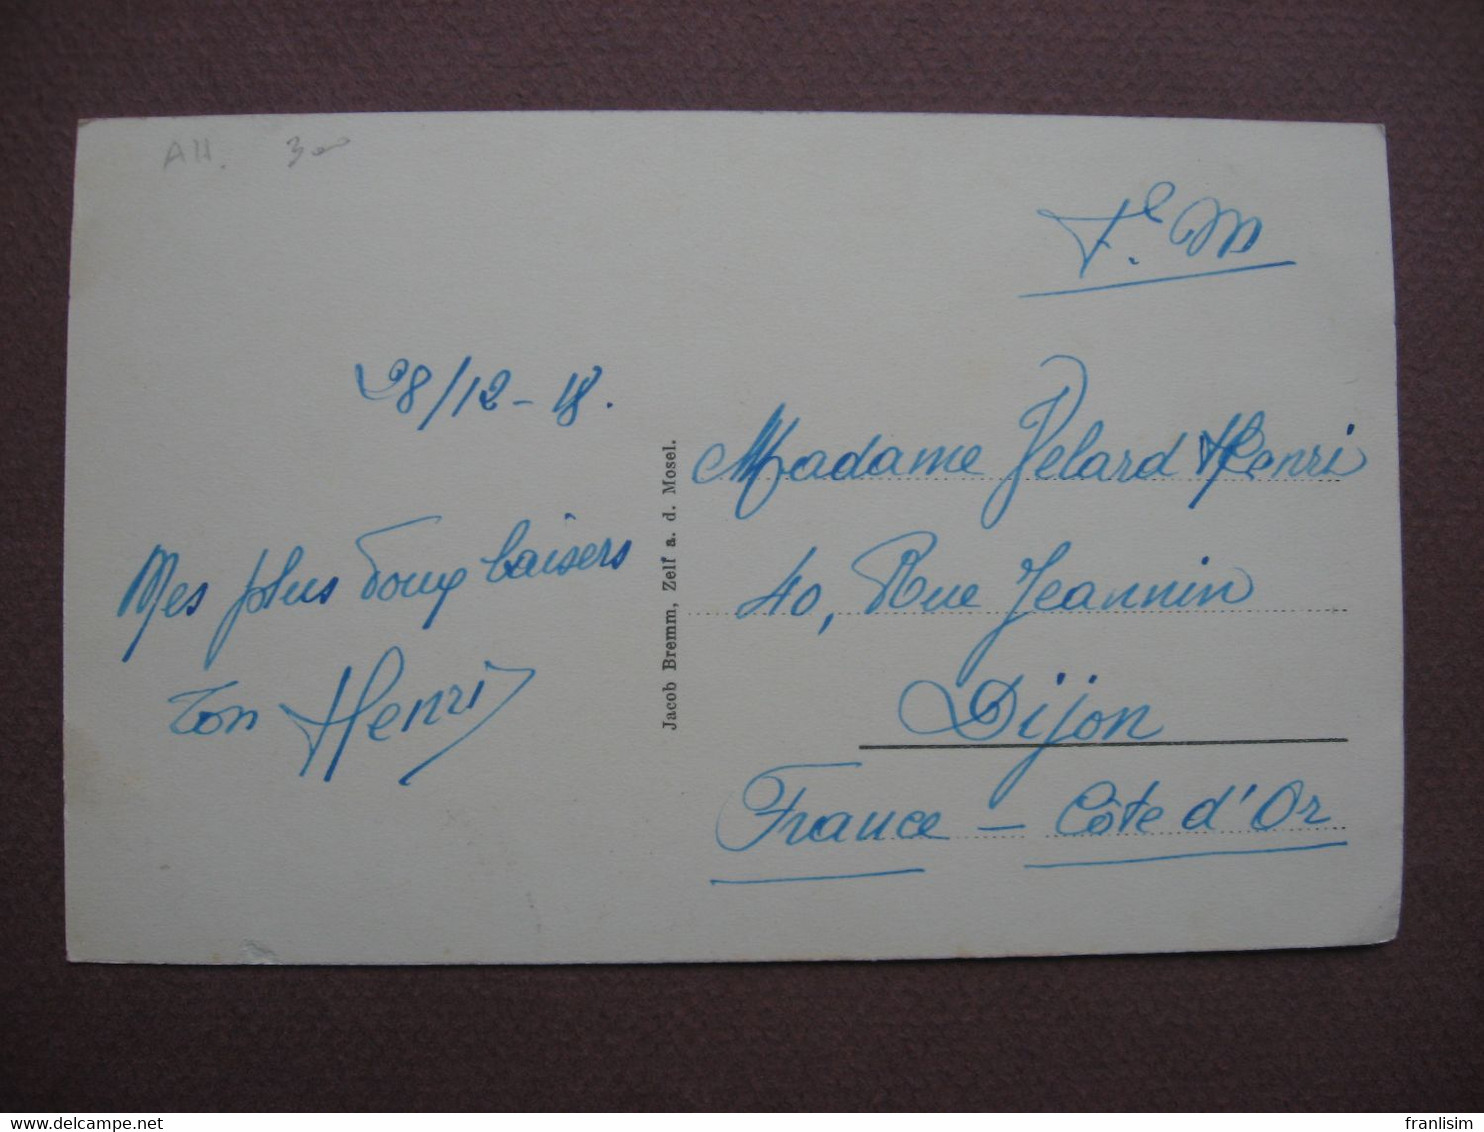 All. 300
F.M
28/12-18.
Mes plus doux baisers
ton Henri
Jacob Bremm, Zell a. d. Mosel.
Madame Pelard Henri
40, Rue Jeannin
Dijon
France - Côte d'Or
www.delcampe.net
franlisim